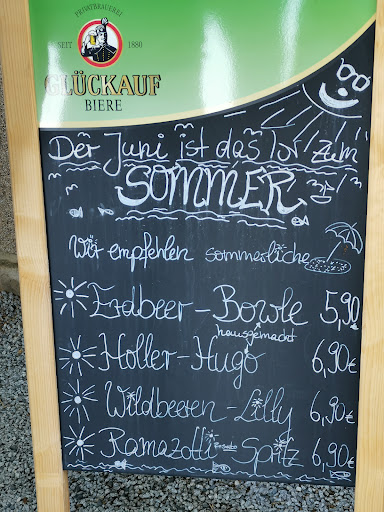 PRIVATBRAUEREI
SEIT 1880
GLÜCKAUF
BIERE
Der Juni ist das Tor zum
SOMMER
Wir empfehlen sommerliche
Erdbeer-Bowle 5,90
hausgemacht
Holler-Hugo 6,90€
Wildbeeren-Lilly 6,90€
Ramazotti-Spritz 6,90€